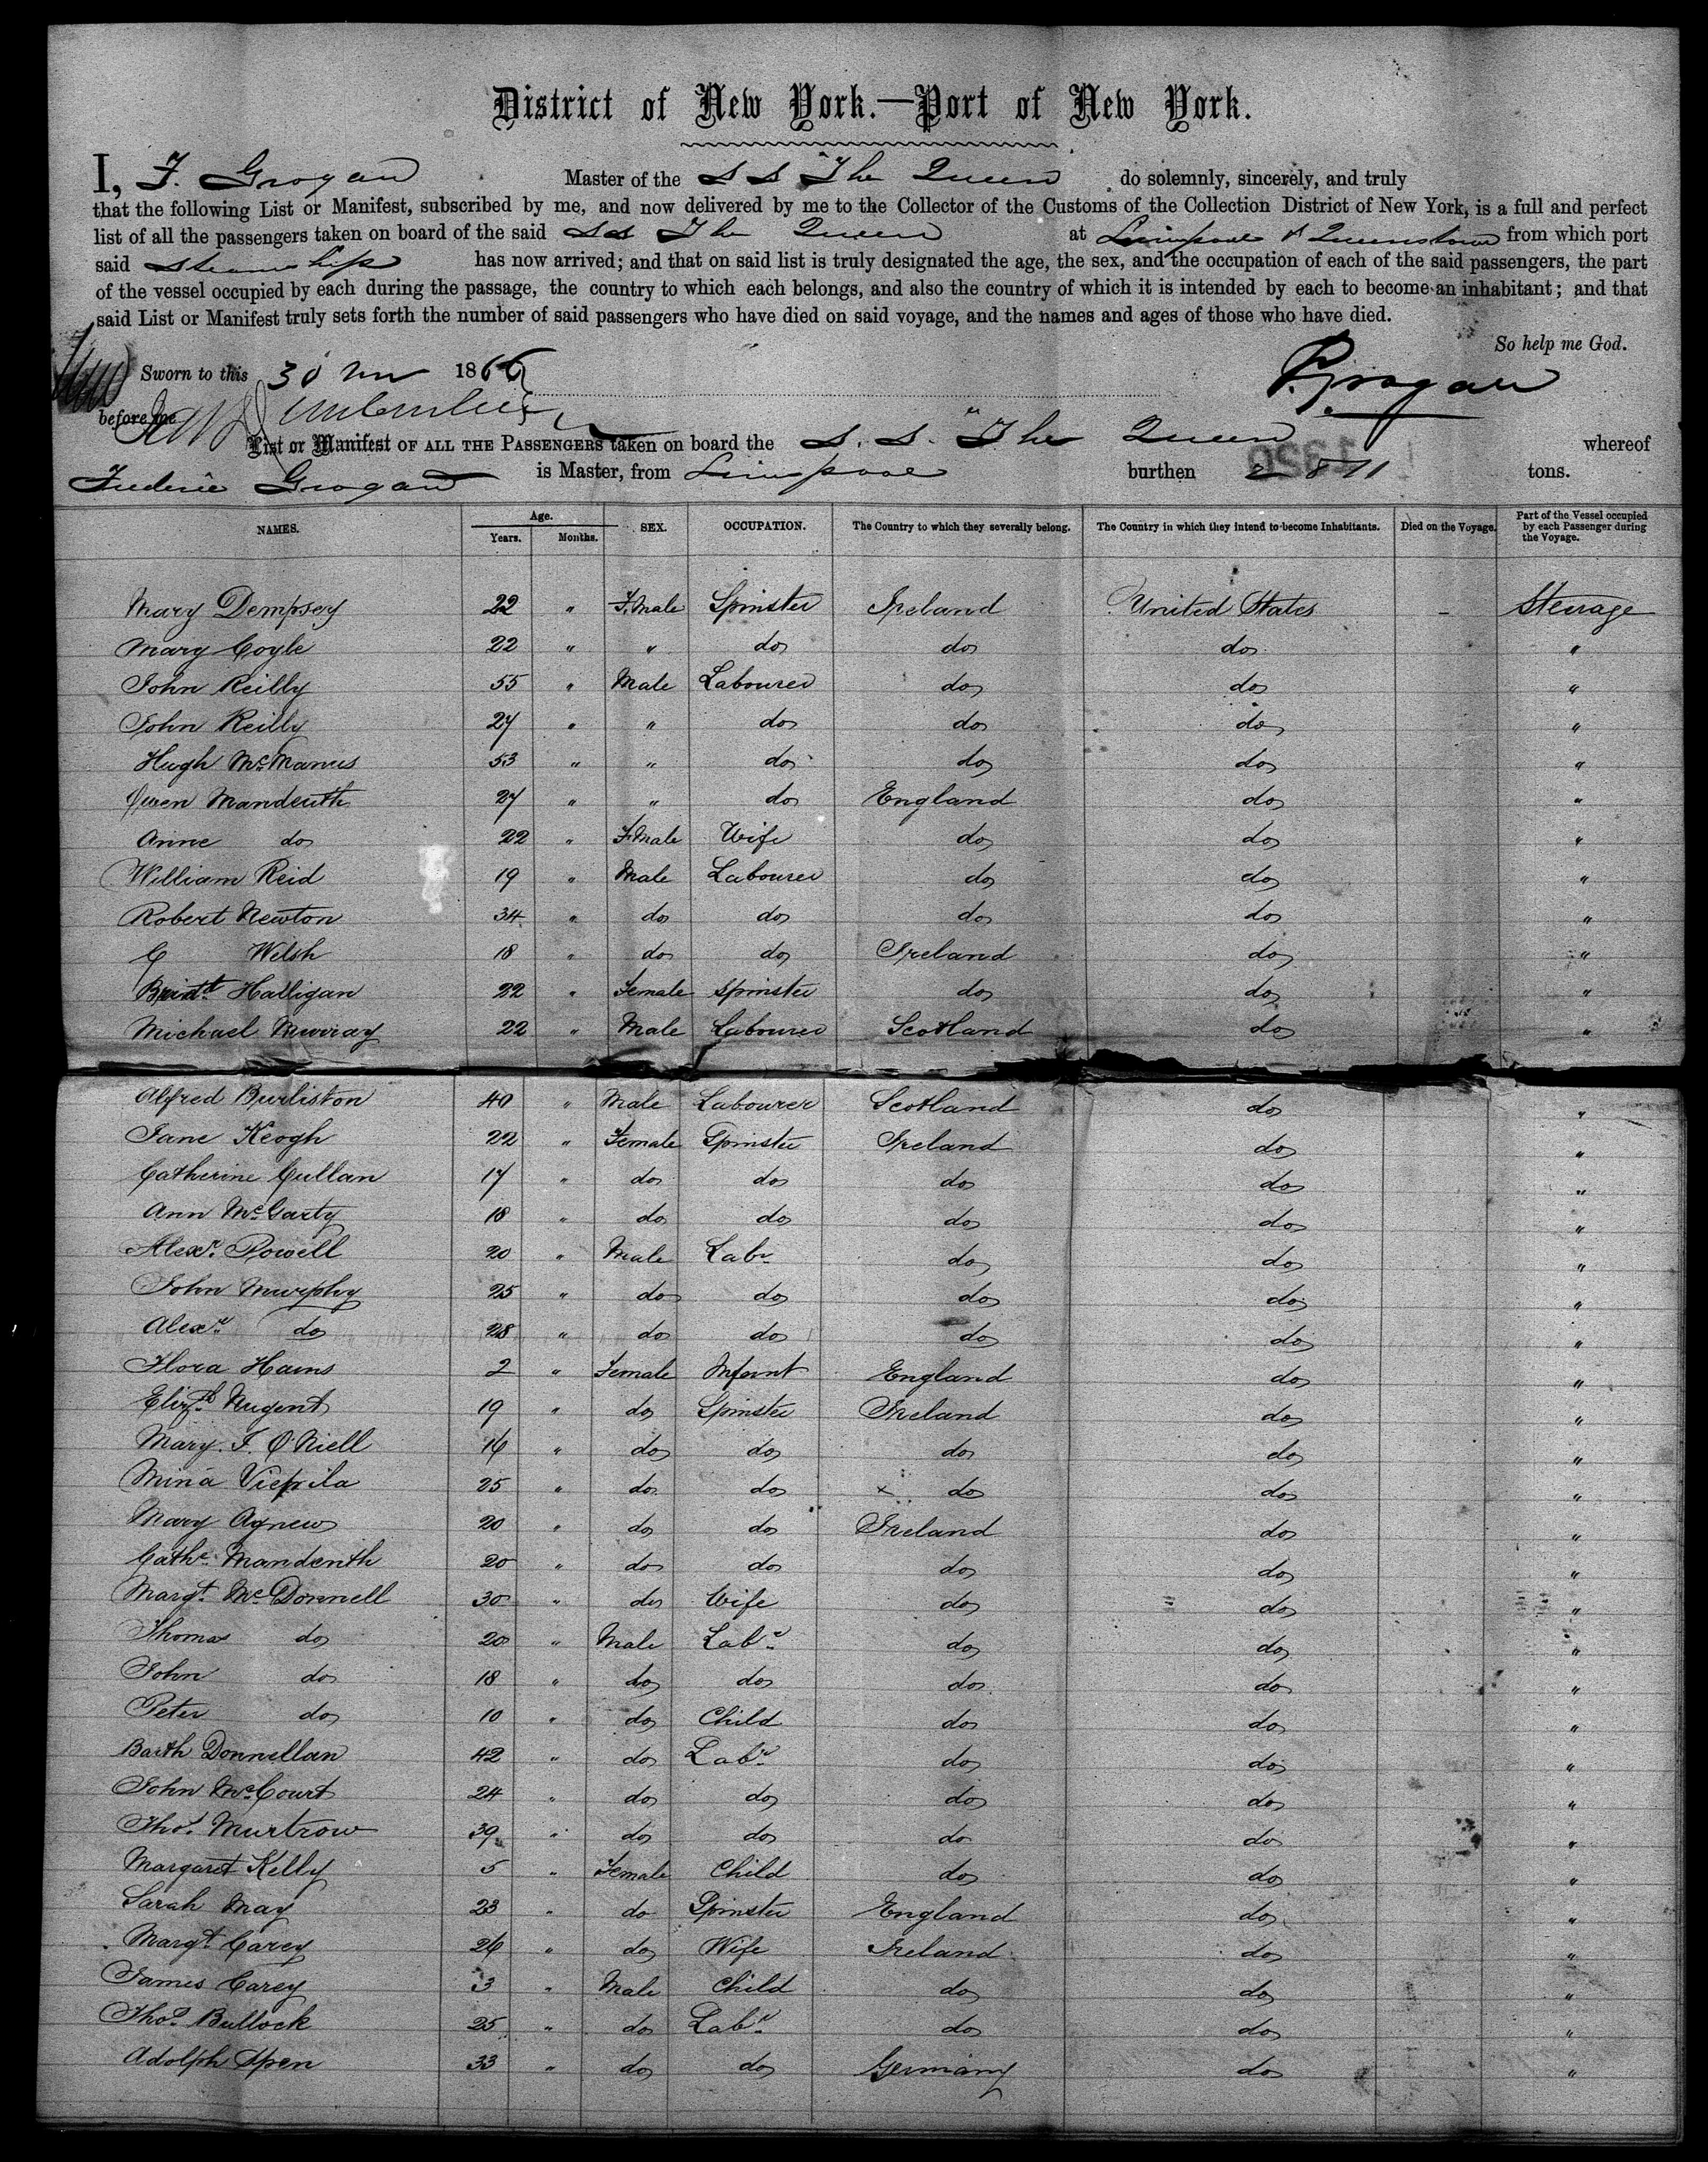 District of New York.—Port of New York.
I, F. Grogan Master of the S S "The Queen do solemnly, sincerely, and truly
that the following List or Manifest, subscribed by me, and now delivered by me to the Collector of the Customs of the Collection District of New York, is a full and perfect
list of all the passengers taken on board of the said SS The Queen at Liverpool & Queenstown from which port
said Steamship has now arrived; and that on said list is truly designated the age, the sex, and the occupation of each of the said passengers, the part
of the vessel occupied by each during the passage, the country to which each belongs, and also the country of which it is intended by each to become an inhabitant; and that
said List or Manifest truly sets forth the number of said passengers who have died on said voyage, and the names and ages of those who have died.
So help me God.
Sworn to this 30 1866 F. Grogan
before me
List or Manifest OF ALL THE PASSENGERS taken on board the S. S. "The Queen whereof
Frederic Grogan is Master, from Liverpool burthen 2871 tons.
NAMES. Age. Years. Months. SEX. OCCUPATION. The Country to which they severally belong. The Country in which they intend to become Inhabitants. Died on the Voyage. Part of the Vessel occupied by each Passenger during the Voyage.
Mary Dempsey 22 " F.Male Spinster Ireland United States - Steerage
Mary Coyle 22 " " do do do "
John Reilly 55 " Male Labourer do do "
John Reilly 27 " " do do do "
Hugh McManus 53 " " do do do "
Owen Mandeuth 27 " " do England do "
Anne do 22 " F.Male Wife do do "
William Reid 19 " Male Labourer do do "
Robert Newton 34 " do do do do "
C Welsh 18 " do do Ireland do "
Bridt Halligan 22 " Female Spinster do do "
Michael Murray 22 " Male Labourer Scotland do "
Alfred Burliston 40 " Male Labourer Scotland do "
Jane Keogh 22 " Female Spinster Ireland do "
Catherine Cullan 17 " do do do do "
Ann McGarty 18 " do do do do "
Alexr. Powell 20 " Male Labr do do "
John Murphy 25 " do do do do "
Alexr. do 28 " do do do do "
Flora Hams 2 " Female Infant England do "
Elizth Nugent 19 " do Spinster Ireland do "
Mary. F. O'Niell 16 " do do do do "
Mina Vieprila 25 " do do x do do "
Mary Agnew 20 " do do Ireland do "
Cathe. Mandenth 20 " do do do do "
Margt. McDonnell 30 " do Wife do do "
Thomas do 20 " Male Labr do do "
John do 18 " do do do do "
Peter do 10 " do Child do do "
Barth Donnellan 42 " do Labr do do "
John McCourt 24 " do do do do "
Thos. Murtrow 39 " do do do do "
Margaret Kelly 5 " Female Child do do "
Sarah May 23 " do Spinster England do "
Margt Carey 26 " do Wife Ireland do "
James Carey 3 " Male Child do do "
Thos. Bullock 25 " do Labr do do "
Adolph Spen 33 " do do Germany do "